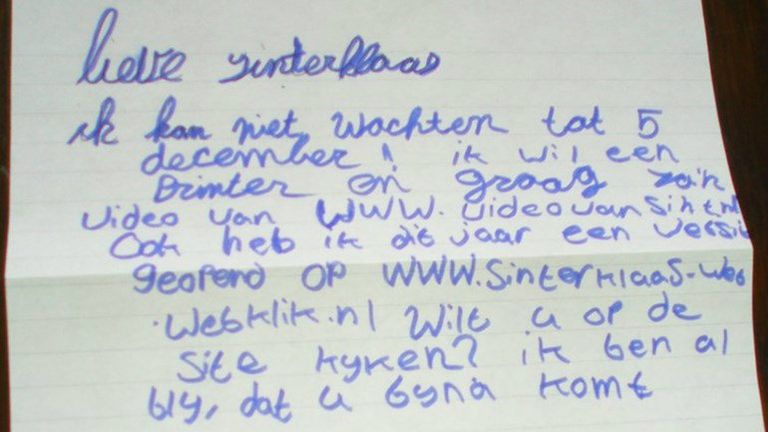 lieve sinterklaas
ik kan niet wachten tot 5
december! ik wil een
Printer en graag zo'n
video van WWW.videovanSint.nl
Ook heb ik dit jaar een versie
geopend OP WWW.Sinterklaas-Web
.Webklik.nl Wilt u op de
Site kyken? ik ben al
bly, dat u byna komt